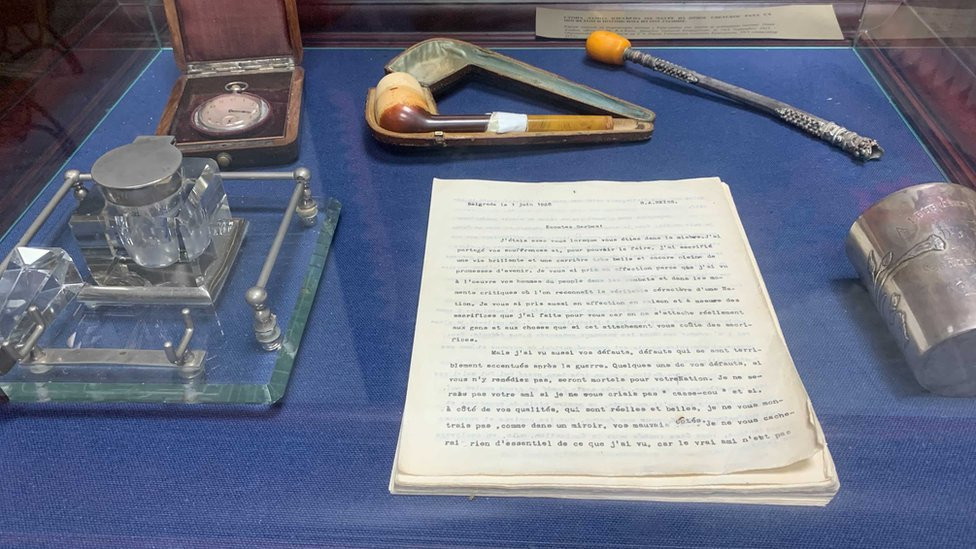 Belgrade le 1 juin 1928 R.A.REISS.
Ecoutez Serbes!
J'étais avec vous lorsque vous étiez dans la misère.J'ai
partagé vos souffrances et, pour pouvoir le faire, j'ai sacrifié
une vie brillante et une carrière très belle et encore pleine de
promesses d'avenir. Je vous ai pris en affection parce que j'ai vu
à l'oeuvre vos hommes du peuple dans les combats et dans les mo-
ments critiques où l'on reconnait le véritable caractère d'une Na-
tion. Je vous ai pris aussi en affection en raison et à mesure des
sacrifices que j'ai faits pour vous car on ne s'attache réellement
aux gens et aux choses que si cet attachement vous coûte des sacri-
fices.
Mais j'ai vu aussi vos défauts, défauts qui se sont terri-
blement accentués après la guerre. Quelques uns de vos défauts, si
vous n'y remédiez pas, seront mortels pour votreNation. Je ne se-
rais pas votre ami si je ne vous criais pas " casse-cou " et si.
à côté de vos qualités, qui sont réelles et belles, je ne vous mon-
trais pas ,comme dans un miroir, vos mauvais cotés. Je ne vous cache-
rai rien d'essentiel de ce que j'ai vu, car le vrai ami n'est pas